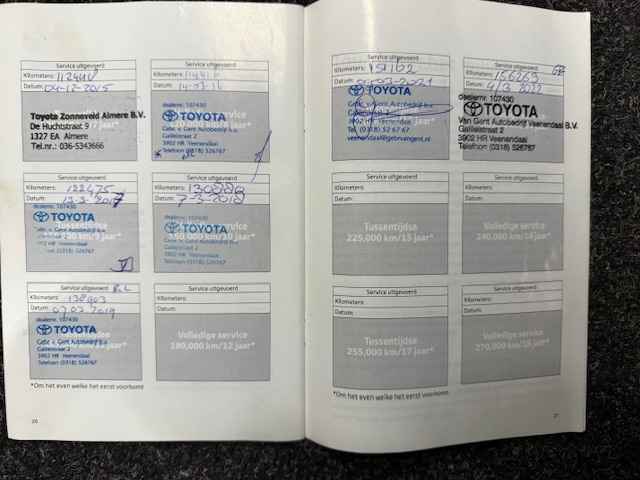 Service uitgevoerd
Kilometers:
Datum: 04-12-2015
Toyota Zonneveld Almere B.V.
De Huchtstraat 9
1327 EA Almere
Tel.nr.: 036-5343666
Service uitgevoerd
Kilometers:
Datum: 14-03-16
dealernr. 107430
TOYOTA
Gebr. v. Gent Autobedrijf b.v.
Galileistraat 2
3902 HR Veenendaal
Telefoon (0318) 526767
Service uitgevoerd
Kilometers: 122475
Datum: 13-3-2017
dealernr. 107430
TOYOTA
Gebr. v. Gent Autobedrijf b.v.
Galileistraat 2
3902 HR Veenendaal
Telefoon (0318) 526767
Service uitgevoerd
Kilometers: 130880
Datum: 7-3-2018
dealernr. 107430
TOYOTA
Gebr. v. Gent Autobedrijf b.v.
Galileistraat 2
3902 HR Veenendaal
Telefoon (0318) 526767
Service uitgevoerd
Kilometers: 138903
Datum: 07.03.2019
dealernr. 107430
TOYOTA
Gebr. v. Gent Autobedrijf b.v.
Galileistraat 2
3902 HR Veenendaal
Telefoon (0318) 526767
Service uitgevoerd
Kilometers:
Datum:
Volledige service
180,000 km/12 jaar*
*Om het even welke het eerst voorkomt
26
Service uitgevoerd
Kilometers:
Datum: -03-2021
TOYOTA
Gebr. v. Gent Autobedrijf b.v.
Galileistraat 2
3902 HR Veenendaal
Tel. (0318) 52 67 67
veenendaal@gebrvangent.nl
Service uitgevoerd
Kilometers: 156263
Datum: 4/3 2022
dealernr. 107430
TOYOTA
Van Gent Autobedrijf Veenendaal B.V.
Galileistraat 2
3902 HR Veenendaal
Telefoon (0318) 526767
Service uitgevoerd
Kilometers:
Datum:
Tussentijdse
225,000 km/15 jaar*
Service uitgevoerd
Kilometers:
Datum:
Volledige service
240,000 km/16 jaar*
Service uitgevoerd
Kilometers:
Datum:
Tussentijdse
255,000 km/17 jaar*
Service uitgevoerd
Kilometers:
Datum:
Volledige service
270,000 km/18 jaar*
*Om het even welke het eerst voorkomt
27